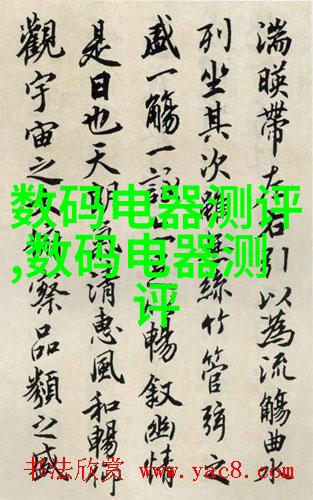 湍暎帶左右引以為流觴曲
列坐其次雖無絲竹管弦之
盛一觴一詠暢叙幽情
是日也天朗氣清惠風和暢仰
觀宇宙之察品類之盛
数码电器测评
,数码电器测
评
书法欣赏 www.yac8.com